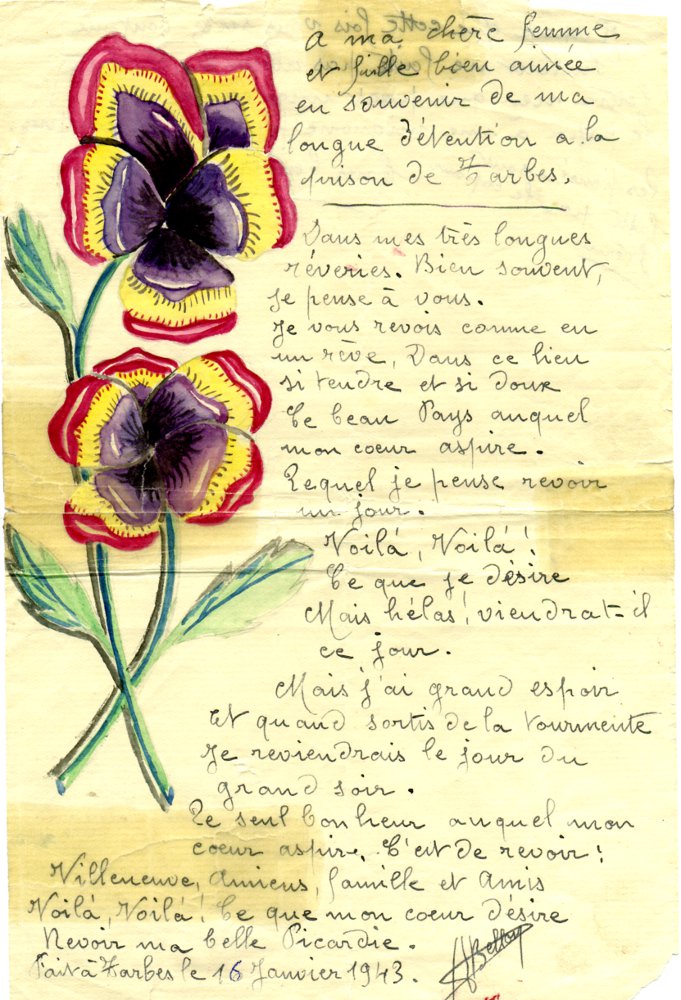 A ma chère femme
et fille bien aimée
en souvenir de ma
longue détention a la
prison de Tarbes.
Dans mes très longues
rêveries. Bien souvent,
je pense à vous.
Je vous revois comme en
un rêve, Dans ce lieu
si tendre et si doux
Ce beau Pays auquel
mon coeur aspire.
Lequel je pense revoir
un jour.
Voilá, Voilá !
Ce que je désire
Mais hélas ! viendrat-il
ce jour.
Mais j'ai grand espoir
Et quand sortis de la tourmente
Je reviendrais le jour du
grand soir.
Le seul bonheur auquel mon
coeur aspire, C'est de revoir :
Villeneuve, Amiens, famille et Amis
Voilá, Voilá ! Ce que mon coeur désire
Revoir ma belle Picardie.
Fait à Tarbes le 16 Janvier 1943.